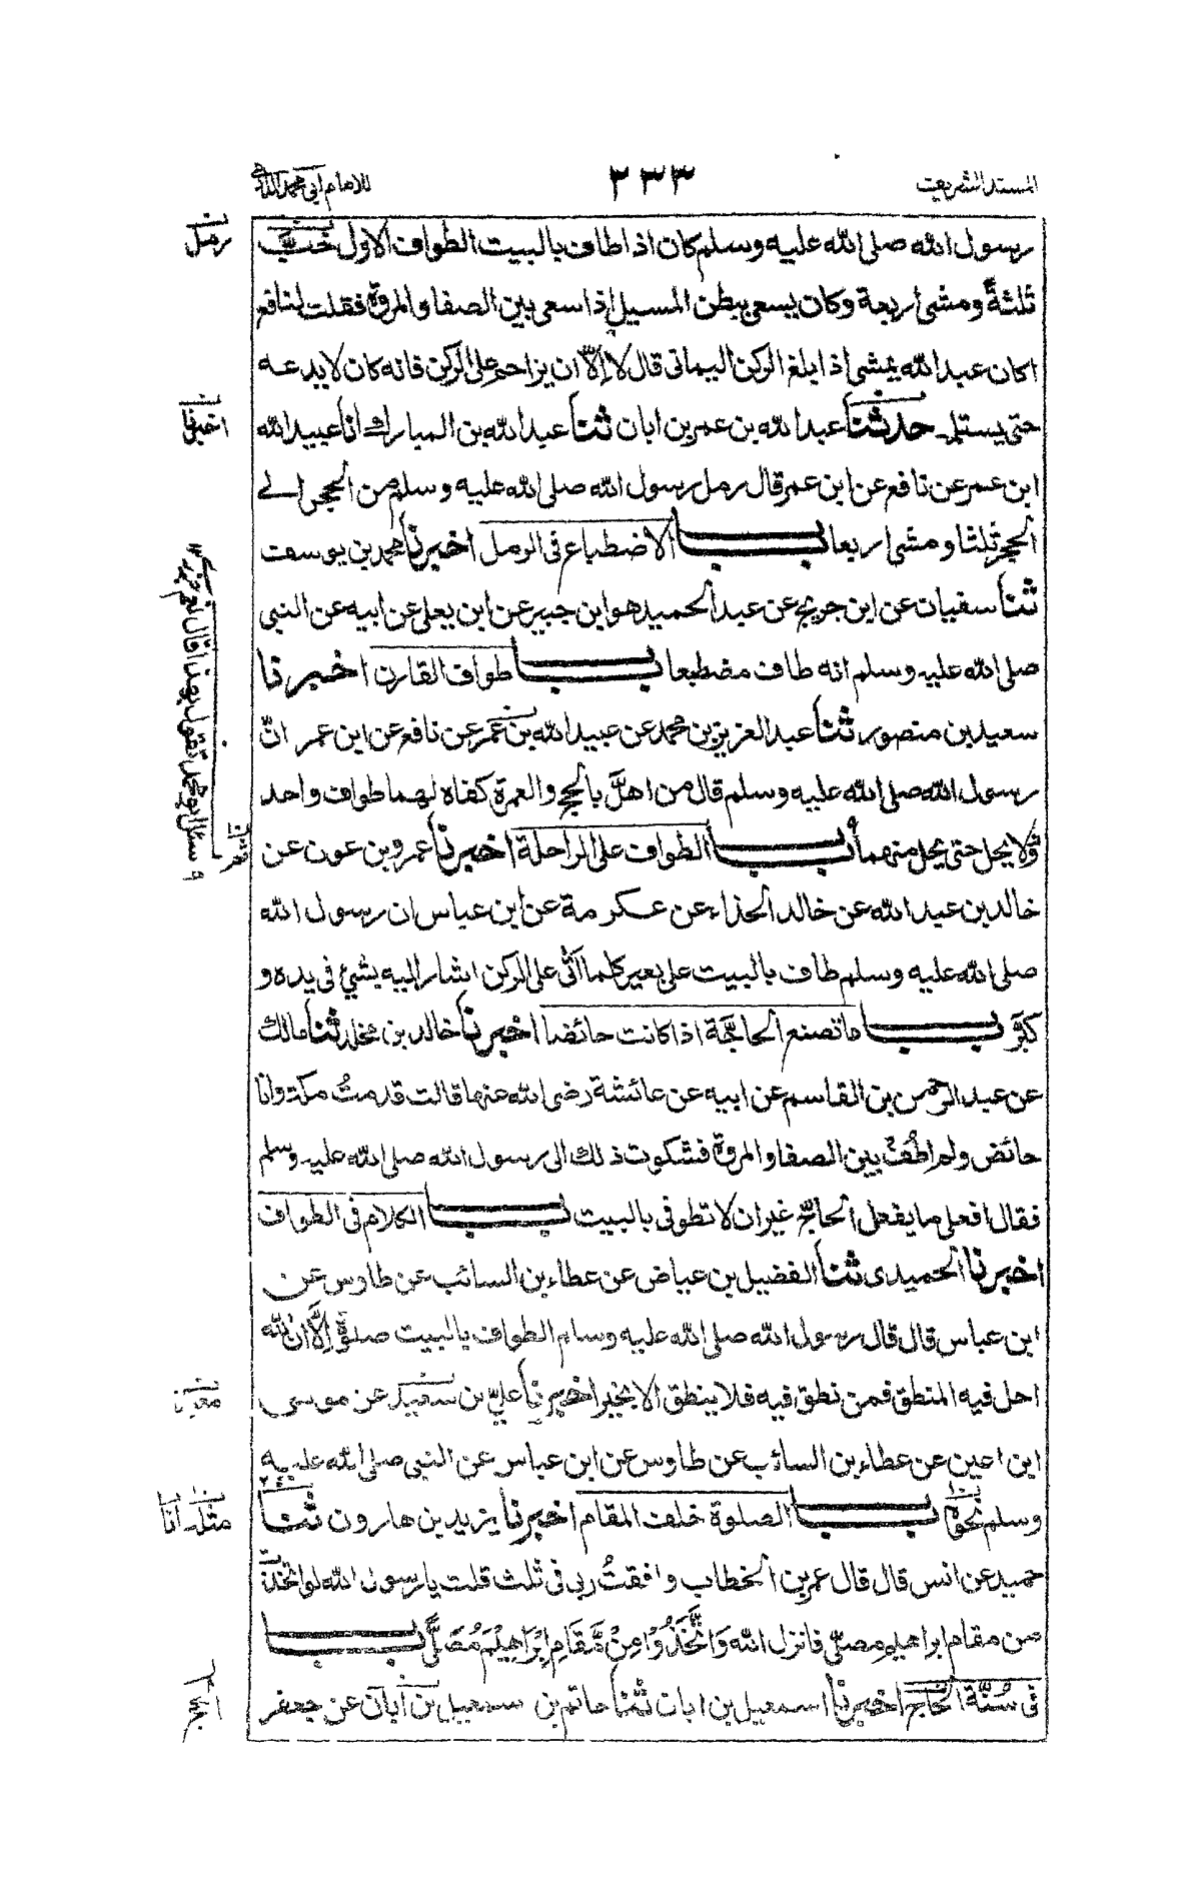 المسند الشريف ٢٣٣ للامام ابى محمد الدارمى
رسول الله صلى الله عليه وسلم كان اذا طاف بالبيت الطواف الاول خبّ
ثلثةً ومشى اربعة وكان يسعى ببطن المسيل اذا سعى بين الصفا والمروة فقلت لنافع
اكان عبد الله يمشى اذا بلغ الركن اليمانى قال لا إلّا ان يزاحم على الركن فانه كان لا يدعه
حتى يستلمه حدثنا عبد الله بن عمر بن ابان ثنا عبد الله بن المبارك انا عبيد الله
ابن عمر عن نافع عن ابن عمر قال رمل رسول الله صلى الله عليه وسلم من الحجر الے
الحجر ثلثا ومشى اربعا باب الاضطباع فى الرمل اخبرنا محمد بن يوسف
ثنا سفيان عن ابن جريج عن عبد الحميد هو ابن جبير عن ابن يعلى عن ابيه عن النبى
صلى الله عليه وسلم انه طاف مضطبعا باب طواف القارن اخبرنا
سعيد بن منصور ثنا عبد العزيز بن محمد عن عبيد الله بن عمر عن نافع عن ابن عمر انّ
رسول الله صلى الله عليه وسلم قال من اهلّ بالحج والعمرة كفاه لهما طواف واحد
ولا يحل حتى يحل منهما باب الطواف على الراحلة اخبرنا عمرو بن عون عن
خالد بن عبد الله عن خالد الحذاء عن عكرمة عن ابن عباس ان رسول الله
صلى الله عليه وسلم طاف بالبيت على بعير كلما اتى على الركن اشار اليه بشئ فى يده و
كبّر باب ما تصنع الحاجّة اذا كانت حائضا اخبرنا خالد بن مخلد ثنا مالك
عن عبد الرحمن بن القاسم عن ابيه عن عائشة رضى الله عنها قالت قدمتُ مكة وانا
حائض ولم اطُفْ بين الصفا والمروة فشكوت ذلك الى رسول الله صلى الله عليه وسلم
فقال افعلى ما يفعل الحاجّ غير ان لا تطوفى بالبيت باب الكلام فى الطواف
اخبرنا الحميدى ثنا الفضيل بن عياض عن عطاء بن السائب عن طاوس عن
ابن عباس قال قال رسول الله صلى الله عليه وسلم الطواف بالبيت صلوة إلّا ان الله
احل فيه المنطق فمن نطق فيه فلا ينطق الا بخير اخبرنا على بن سعيد عن موسى
ابن اعين عن عطاء بن السائب عن طاوس عن ابن عباس عن النبى صلى الله عليه
وسلم نحوه باب الصلوة خلف المقام اخبرنا يزيد بن هارون ثنا
حميد عن انس قال قال عمر بن الخطاب وافقتُ ربى فى ثلث قلت يا رسول الله لو اتخذت
من مقام ابراهيم مصلى فانزل الله وَاتَّخَذُوْا مِنْ مَّقَامِ اِبْرَاهِيْمَ مُصَلًّى باب
فى سُنّة الحاج اخبرنا اسمعيل بن ابان ثنا حاتم بن سمعيل بن ابان عن جعفر
رمل
اخبرنا
سئل ابو محمد تقول بهذا قال نعم
معبد
مثله انا